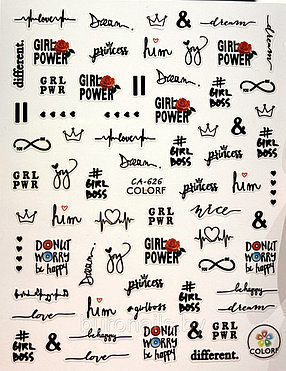 love
Dream.
&
dream
dream
different.
GIRL
POWER
princess
him
joy
GIRL
POWER
GRL
PWR
GIRL
POWER
Dream.
#
GIRL
BOSS
GIRL
POWER
love
Dream.
#
GIRL
BOSS
&
princess
princess
GRL
PWR
joy
#
GIRL
BOSS
CA-626
COLORF
princess
him
him
GRL
PWR
nice
&
DONUT
WORRY
be happy
Dream.
joy
GIRL
POWER
#
GIRL
BOSS
princess
be happy
love
him
#girlboss
#
GIRL
BOSS
dream
#
GIRL
BOSS
be happy
love
DONUT
WORRY
be happy
&
GRL
PWR
different.
COLORF